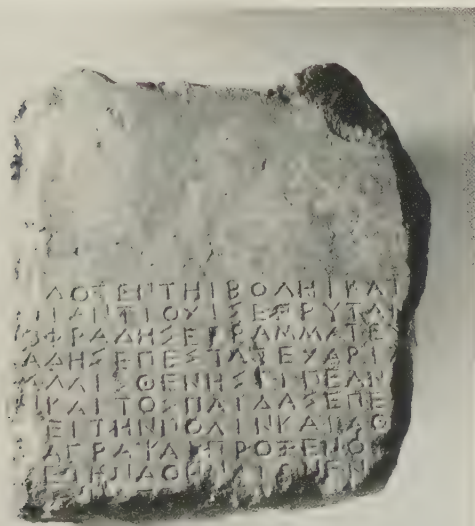 ΔΟΞΕΝΤΗΙΒΟΛΗΙΚΑΙ
ΑΝΤΙΟΧΙΣΕΠΡΥΤΑΝ
ΦΡΑΔΗΣΕΓΡΑΜΜΑΤΕΥ
ΑΔΗΣΕΠΕΣΤΑΤΕΧΑΡΙ
ΑΛΛΙΣΘΕΝΗΣΕΙΠΕΑΝ
ΙΚΑΙΤΟΣΠΑΙΔΑΣΕΠΕ
ΕΙΤΗΝΠΟΛΙΝΚΑΙΑΘ
ΑΓΡΑΨΑΙΠΡΟΞΕΝΟ